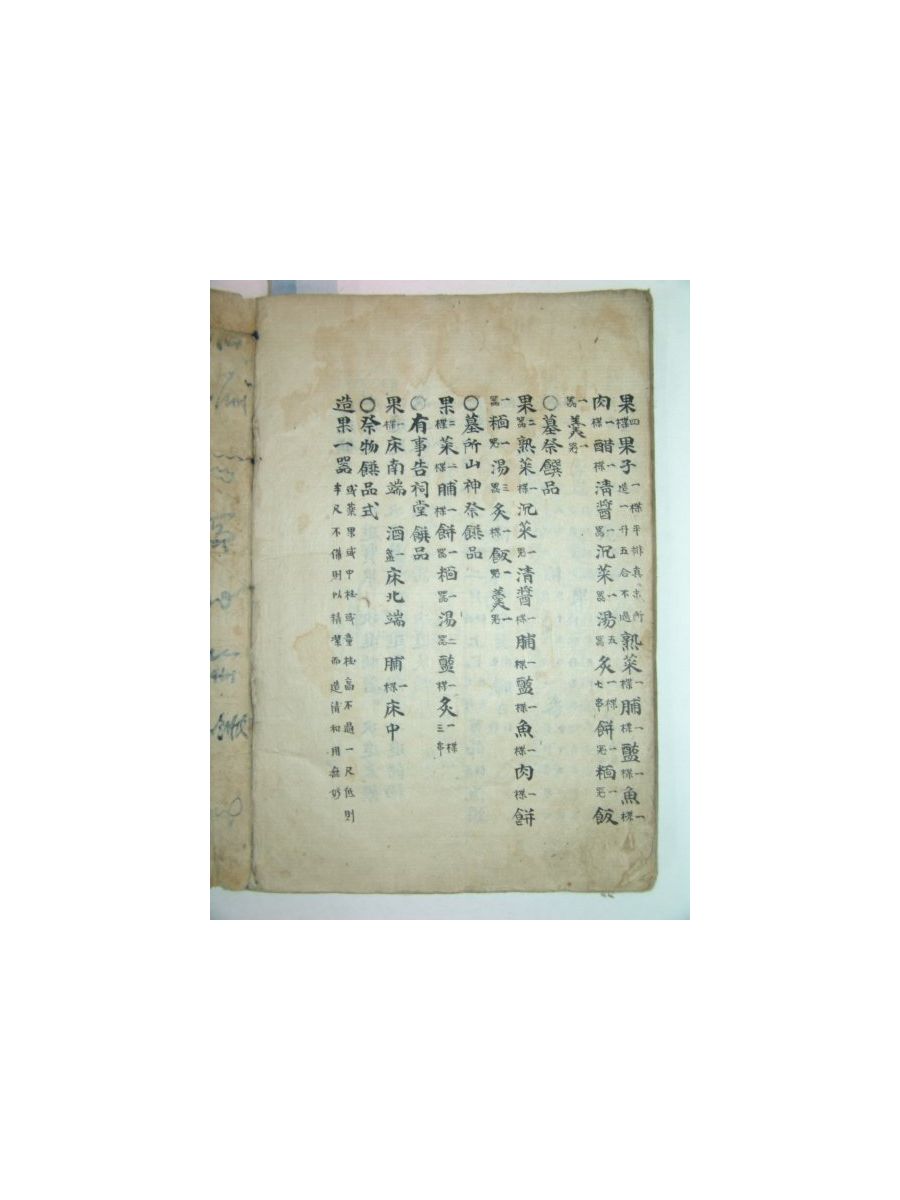 果四楪果子一楪平排真末所造一升五合不過熟菜一楪脯一楪醢一楪魚一楪
肉一楪醋一楪淸醬一器沉菜一器湯五器炙一楪七串餠一器糆一器飯
一器羹一器
○墓祭饌品
果二器熟菜一楪沉菜一器清醬一楪脯一楪醢一楪魚一楪肉一楪餠
一器糆一器湯三器炙一楪飯一器羹一器
○墓所山神祭饌品
果二楪菜二楪脯一楪餠一器糆一器湯二器醢一楪炙一楪三串
○有事告祠堂饌品
果一楪床南端 酒一盞床北端 脯一楪床中
○祭物饌品式
造果一器或藥果或中桂或童桂高不過一尺低則半尺不備則以精潔而造淸和用無妨